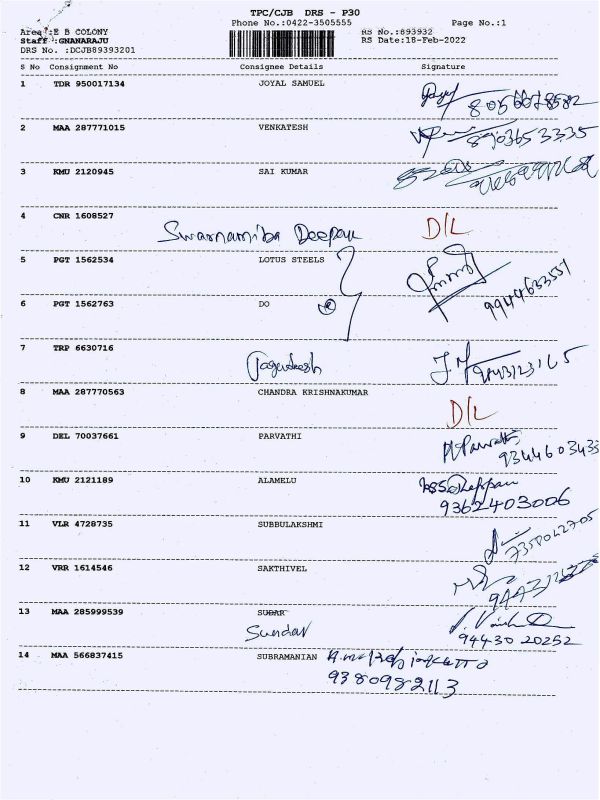 TPC/CJB DRS - P30
Phone No.:0422-3505555 Page No.:1
Area :E B COLONY RS No.:893932
Staff :GNANARAJU RS Date:18-Feb-2022
DRS No. :DCJB89393201
S No Consignment No Consignee Details Signature
1 TDR 950017134 JOYAL SAMUEL
8056678582
2 MAA 287771015 VENKATESH
8903653335
3 KMU 2120945 SAI KUMAR
4 CNR 1608527
Deepak D/L
5 PGT 1562534 LOTUS STEELS
9944633551
6 PGT 1562763 DO
7 TRP 6630716
Jagadeesh
8 MAA 287770563 CHANDRA KRISHNAKUMAR
D/L
9 DEL 70037661 PARVATHI
9344603433
10 KMU 2121189 ALAMELU
9362403006
11 VLR 4728735 SUBBULAKSHMI
12 VRR 1614546 SAKTHIVEL
13 MAA 285999539 SUDAR
Sundar
94430 20252
14 MAA 566837415 SUBRAMANIAN
9380982113